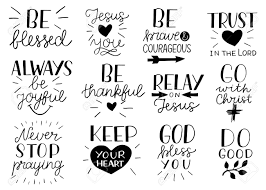 BE
blessed
Jesus
you
BE
brave &
COURAGEOUS
TRUST
IN THE LORD
ALWAYS
be
joyful
BE
thankful
RELAY
on
Jesus
GO
with
Christ
Never
STOP
praying
KEEP
YOUR
HEART
GOD
bless
YOU
DO
GOOD